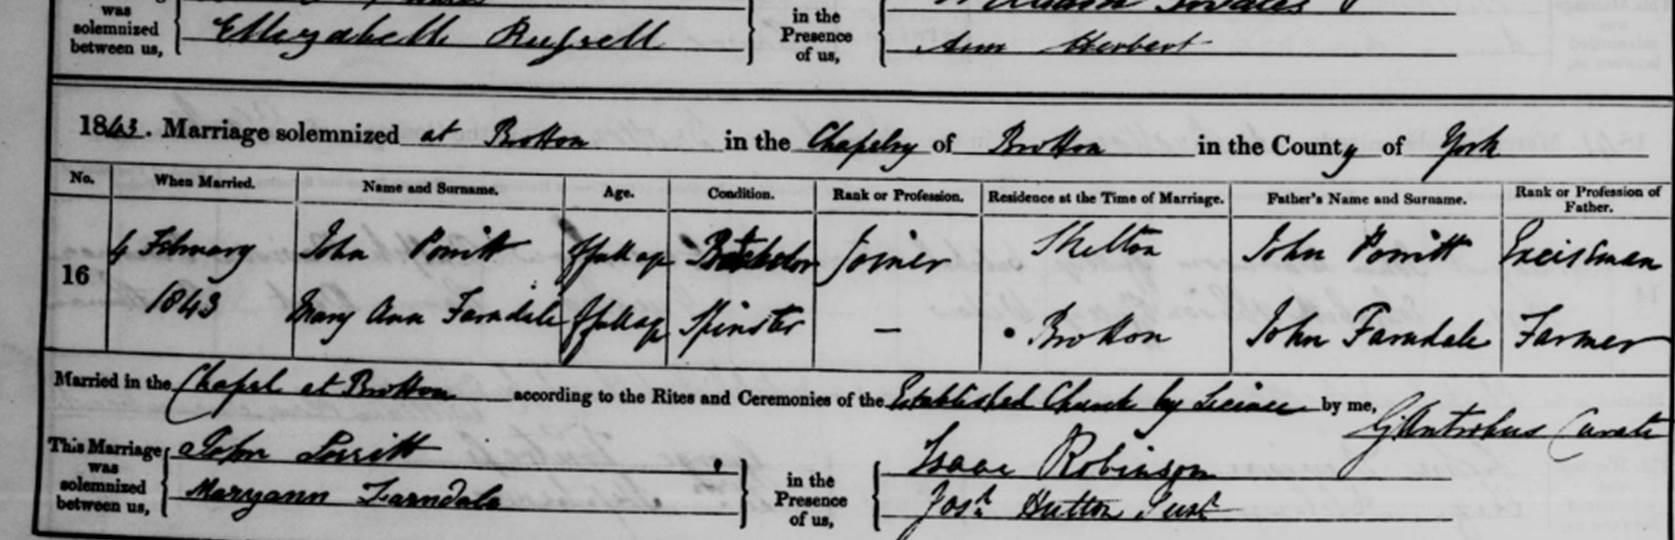 was
solemnized
between us,
Ellizabeth Russell
in the
Presence
of us,
Ann Herbert
1843. Marriage solemnized at Brotton in the Chapelry of Brotton in the County of York
No. When Married. Name and Surname. Age. Condition. Rank or Profession. Residence at the Time of Marriage. Father's Name and Surname. Rank or Profession of Father.
16 4 February John Porritt of full age Batchelor Joiner Skelton John Porritt Exciseman
1843 Mary Ann Farndale of full age Spinster — Brotton John Farndale Farmer
Married in the Chapel at Brotton according to the Rites and Ceremonies of the Established Church by Licence by me, G Antrobus Curate
This Marriage
was
solemnized
between us,
John Porritt
Maryann Farndale
in the
Presence
of us,
Isaac Robinson
Josh Hutton